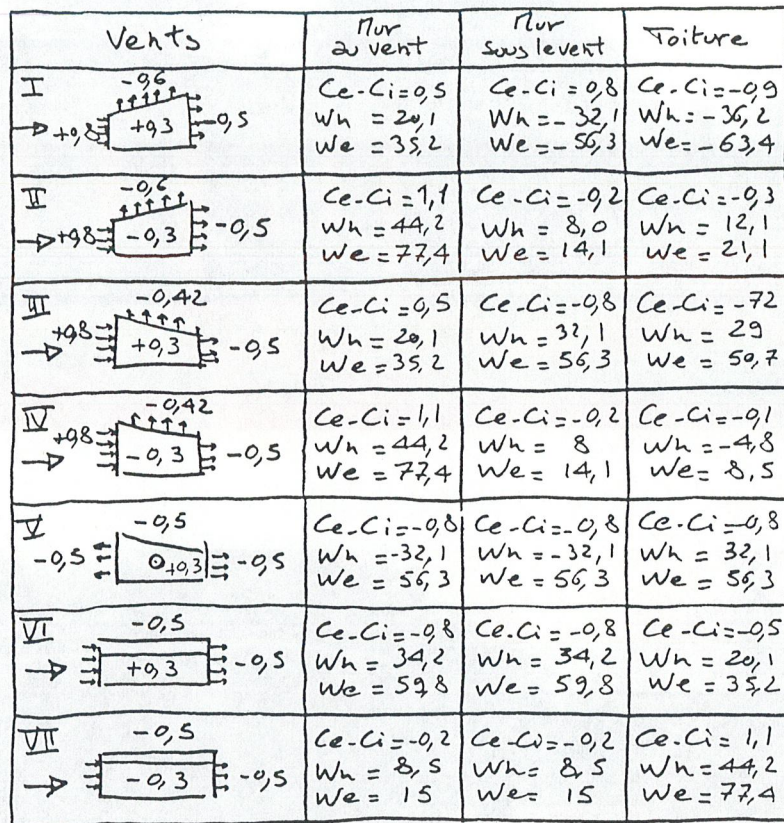 Vents
Mur au vent
Mur sous le vent
Toiture
I
-0,6
+0,8
+0,3
-0,5
Ce-Ci=0,5
Wn = 20,1
We = 35,2
Ce-Ci=0,8
Wn = -32,1
We = -56,3
Ce-Ci=-0,9
Wn = -36,2
We = -63,4
II
-0,6
+0,8
-0,3
-0,5
Ce-Ci=1,1
Wn = 44,2
We = 77,4
Ce-Ci=-0,2
Wn = 8,0
We = 14,1
Ce-Ci=-0,3
Wn = 12,1
We = 21,1
III
-0,42
+0,8
+0,3
-0,5
Ce-Ci=0,5
Wn = 20,1
We = 35,2
Ce-Ci=-0,8
Wn = 32,1
We = 56,3
Ce-Ci=-72
Wn = 29
We = 50,7
IV
-0,42
+0,8
-0,3
-0,5
Ce-Ci=1,1
Wn = 44,2
We = 77,4
Ce-Ci=-0,2
Wn = 8
We = 14,1
Ce-Ci=-0,1
Wn = -4,8
We = 8,5
V
-0,5
-0,5
+0,3
-0,5
Ce-Ci=-0,8
Wn = -32,1
We = 56,3
Ce-Ci=-0,8
Wn = -32,1
We = 56,3
Ce-Ci=-0,8
Wn = 32,1
We = 56,3
VI
-0,5
+0,3
-0,5
Ce-Ci=-0,8
Wn = 34,2
We = 59,8
Ce-Ci=-0,8
Wn = 34,2
We = 59,8
Ce-Ci=-0,5
Wn = 20,1
We = 35,2
VII
-0,5
-0,3
-0,5
Ce-Ci=-0,2
Wn = 8,5
We = 15
Ce-Ci=-0,2
Wn = 8,5
We = 15
Ce-Ci= 1,1
Wn = 44,2
We = 77,4